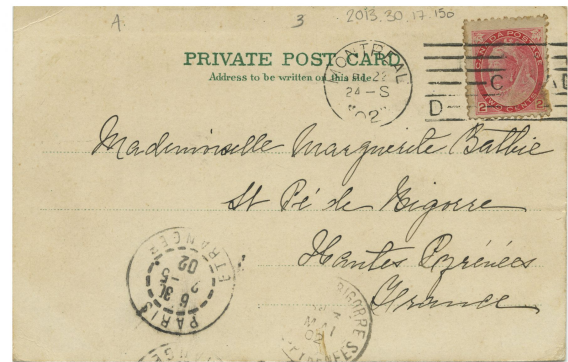 A. 3 2013.30.17.150
PRIVATE POST CARD
Address to be written on this side
MONTREAL
22
24-S
"02"
CANADA POSTAGE
2 TWO CENTS 2
C
D
Mademoiselle Marguerite Bathie
St Pé de Bigorre
Hautes Pyrénées
France
PARIS ETRANGER
02
BIGORRE
MAI
02
PYRENEES